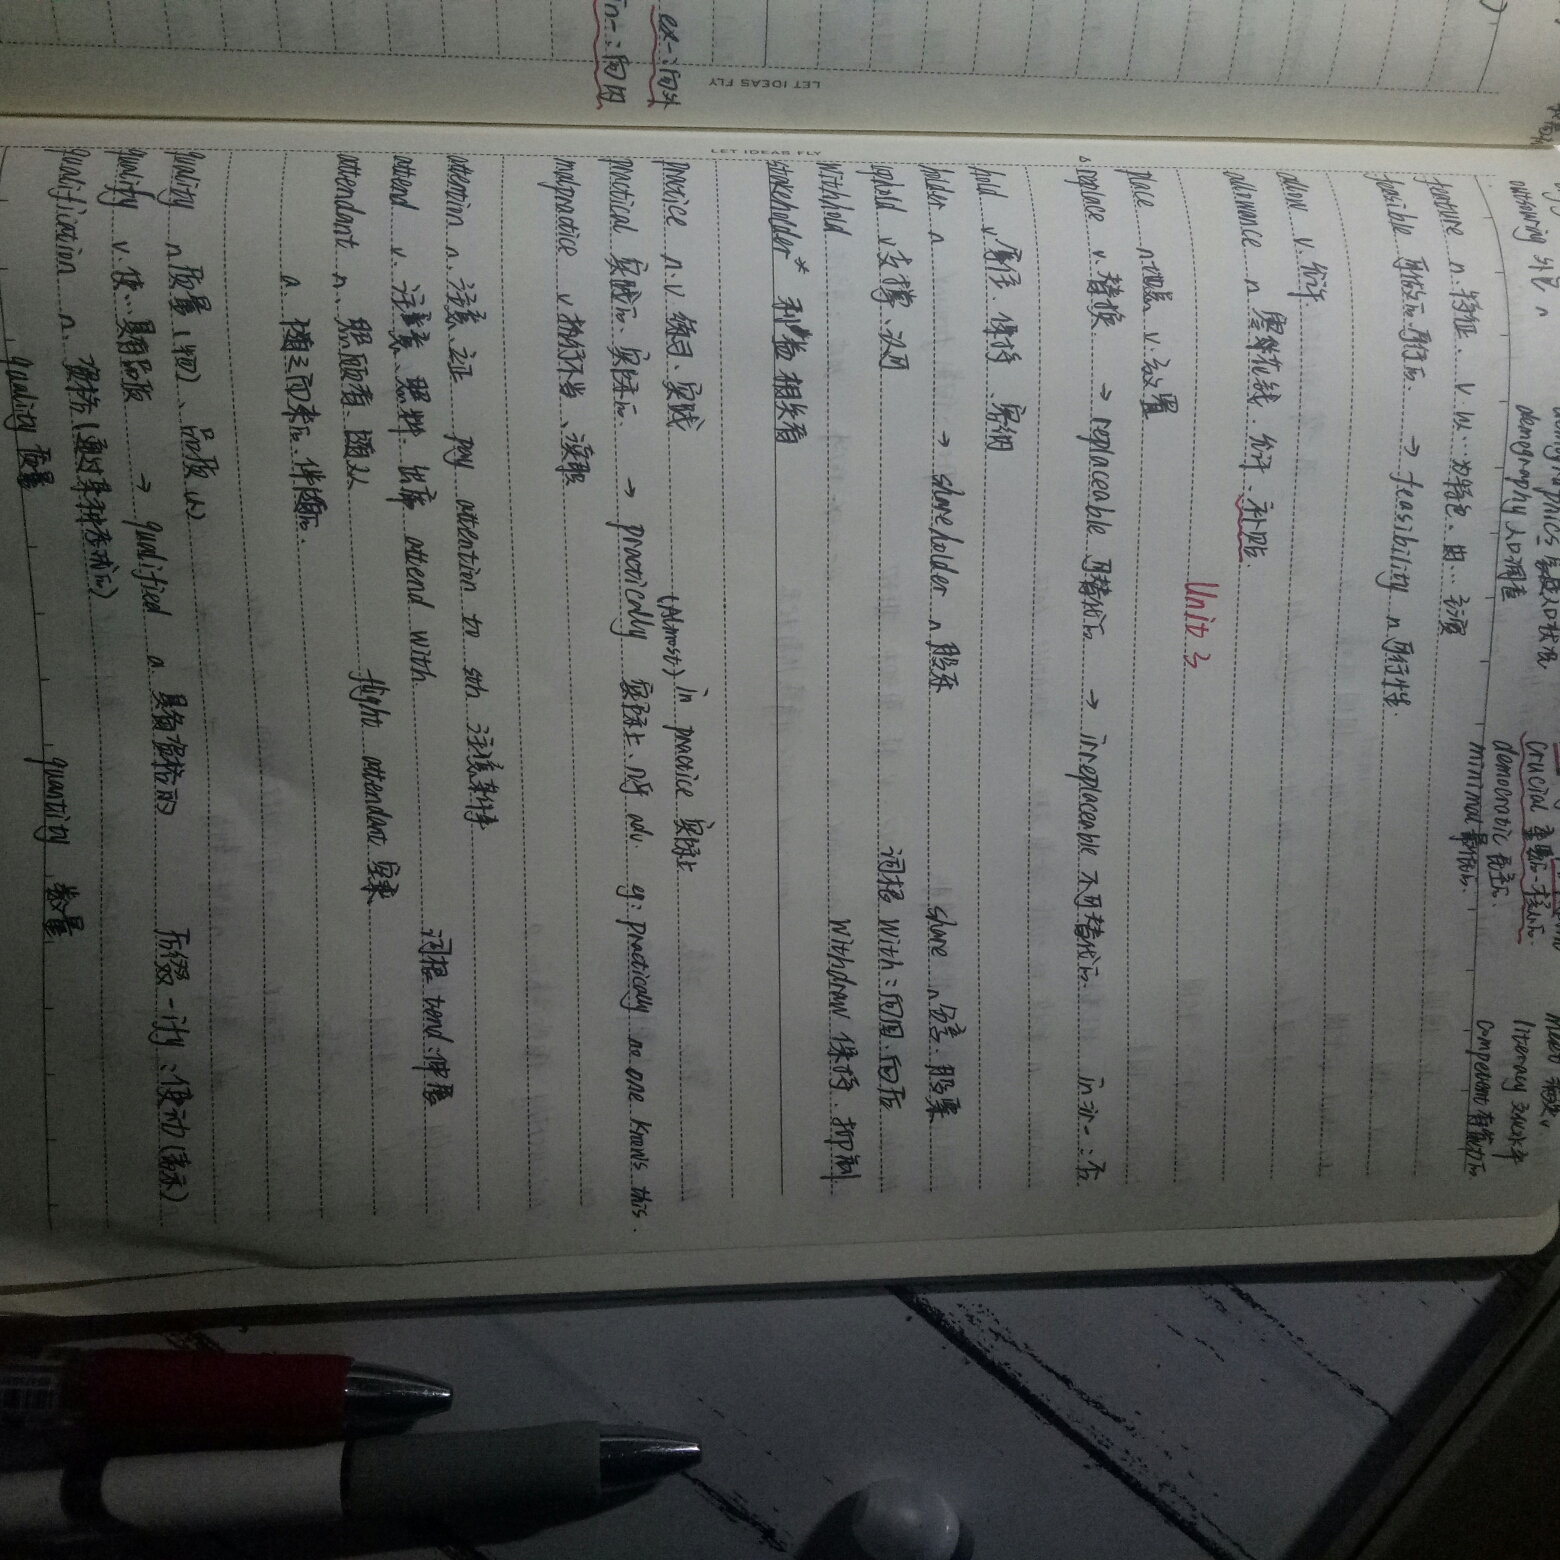 crucial 重要的、核心的
democratic 民主的
demography 人口调查
literacy 文化水平
minimal 最低的
competent 有能力的
feature n. 特征、v. 以…为特色、由…主演
feasible 可做的、可行的 → feasibility n 可行性.
allow v. 允许
allowance n 零用钱、允许、补贴.
Unit 3
place n 地点 v. 设置
replace v. 替换 → replaceable 可替代的 → irreplaceable 不可替代的 in- ir- : 否
hold v. 居住、保持、容纳
holder n → shareholder n 股东 share n 分享、股票
uphold v 支撑、 词根 With : 向回、向后
withhold Withdraw 保持、抑制
stakeholder * 利益相关者
practice n. v. 练习、实践 (Almost) in practice 实际上
practical 实践的、实际的 → practically 实际上、几乎 adv. eg: Practically no one knows this.
malpractice v 执行不当、渎职
attention n. 注意、立正 pay attention to sth 注意某件事
attend v. 注意、照料、出席 attend with 词根 tend : 伸展
attendant n. 照顾者、随从 flight attendant 空乘
a. 随之而来的、伴随的.
quality n 质量(物)、品质(人)
qualify v. 使…具有品质 → qualified a 具备资格的 后缀 -ify : 使动(表示)
qualification n. 资格(通过某种考试的)
quality 质量 quantity 数量
LET IDEAS FLY
LET IDEAS FLY
ex- : 向外
in- : 向内